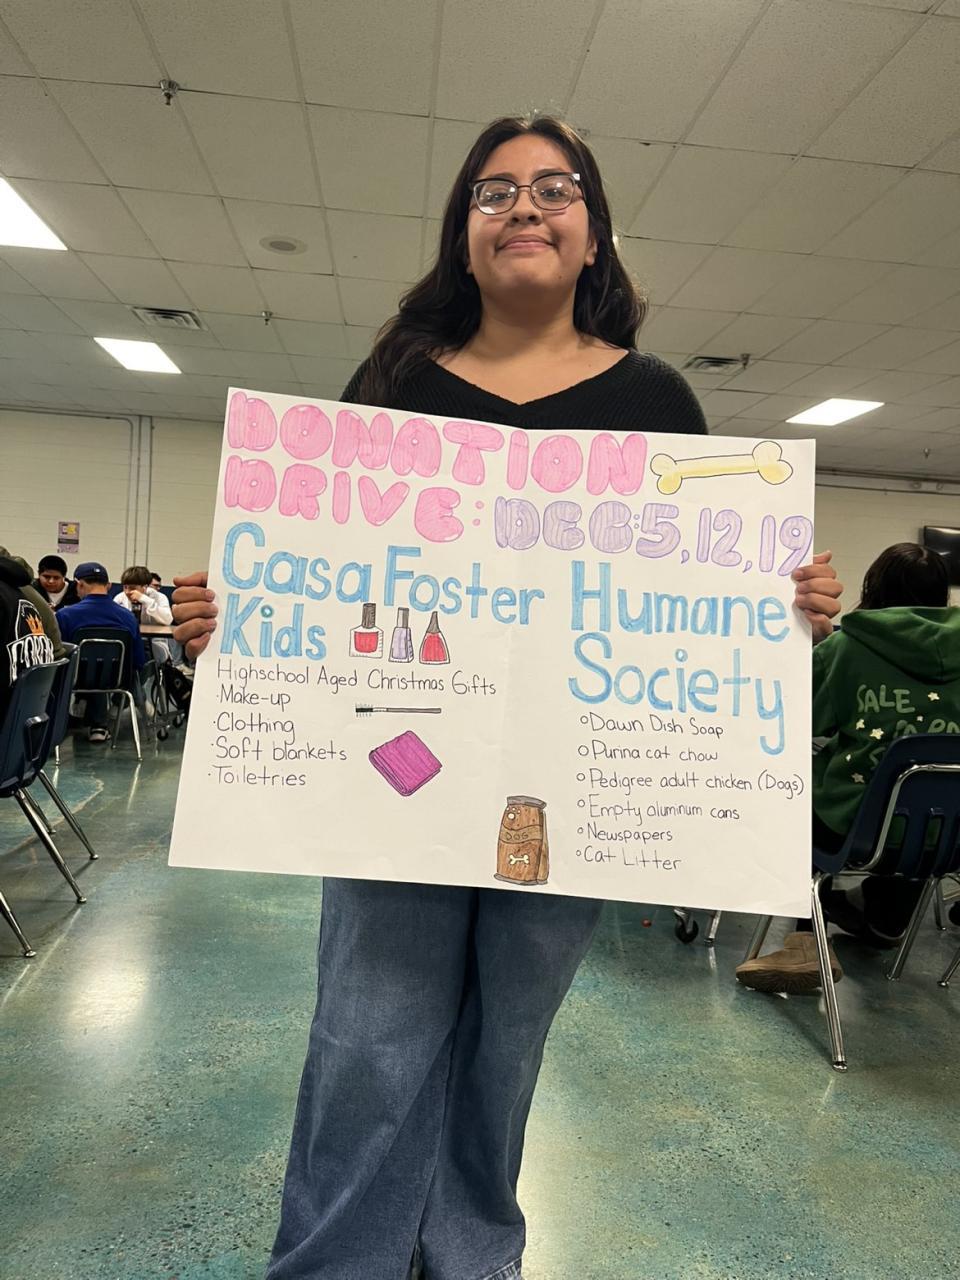 DONATION
DRIVE: DEC:5,12,19
Casa Foster
Kids
Highschool Aged Christmas Gifts
·Make-up
·Clothing
·Soft blankets
·Toiletries
Humane
Society
°Dawn Dish Soap
°Purina cat chow
°Pedigree adult chicken (Dogs)
°Empty aluminum cans
°Newspapers
°Cat Litter
DOG
SALE